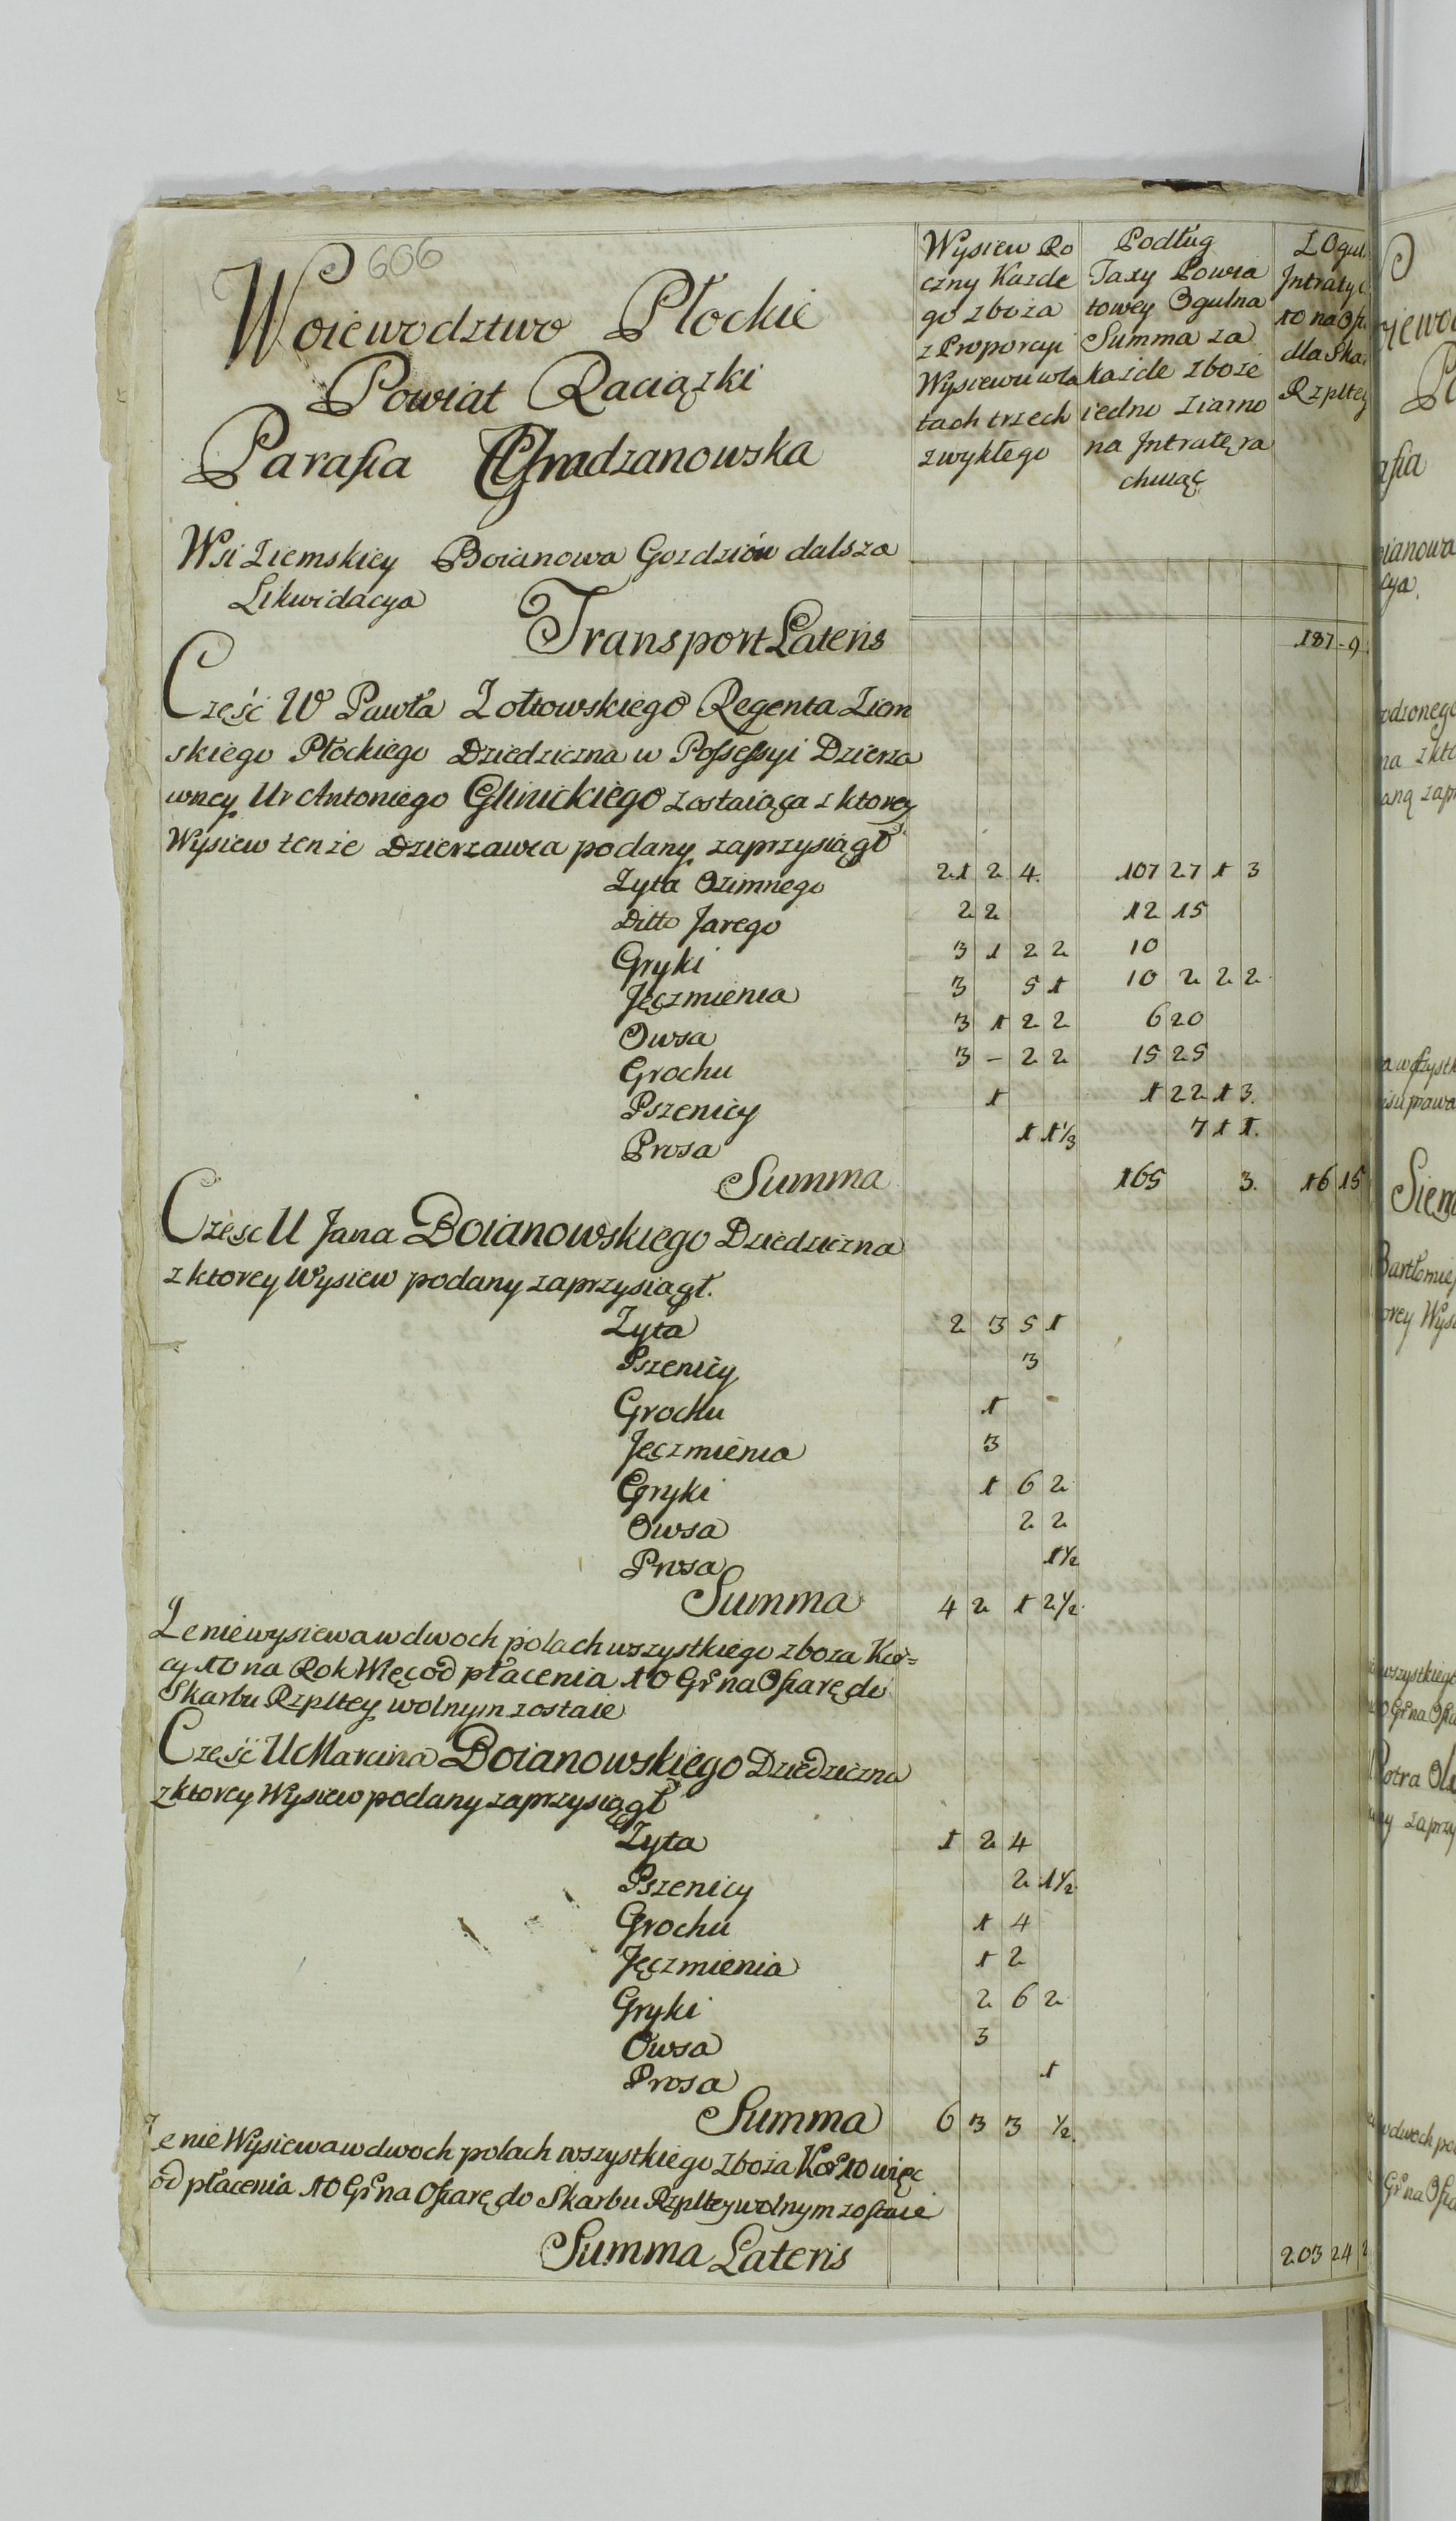 606
Woiewodztwo Płockie
Powiat Raciązki
Parafia Chradzanowska
Wysiew Ro
czny Kazde
go zboża
z Proporcyi
Wysiewu w la
tach trzech
zwykłego
Podług
Taxy Powia
towey Ogulna
Summa za
każde zboże
iedno ziarno
na Intratę ra
chuiąc
Z Ogul
Intraty
10 na Ofi
dla Ska
Rzpltey
Wsi Ziemskiey Boianowa Gozdziów dalsza
Likwidacya
Transport Lateris 187 - 9
Część W Pawła Zołtowskiego Regenta Ziem
skiego Płockiego Dziedziczna w Possessyi Dzierza
wney Ur Antoniego Glinickiego zostaiąca z ktorey
Wysiew tenże Dzierzawca podany zaprzysiągł
Zyta Ozimnego 21 2 4. 107 27 1 3
Ditto Jarego 2 2 12 15
Gryki 3 1 2 2 10
Jęczmienia 3 5 1 10 2 2 2
Owsa 3 1 2 2 6 20
Grochu 3 - 2 2 15 25
Pszenicy 1 1 22 1 3.
Prosa 1 1⅓ 7 1 1.
Summa 165 3. 16 15
Częsc U Jana Boianowskiego Dziedziczna
z ktorey Wysiew podany zaprzysiągł.
Zyta 2 3 5 1
Pszenicy 3
Grochu 1 -
Jęczmienia 3
Gryki 1 6 2
Owsa 2 2
Prosa 1½
Summa 4 2 1 2½
Ze niewysiewa w dwoch polach wszystkiego zboza Kor=
cy 10 na Rok Więc od płacenia 10 Grś na Ofiarę do
Skarbu Rzpltey wolnym zostaie
Część U Marcina Boianowskiego Dziedziczna
z ktorey Wysiew podany zaprzysiągł
Zyta 1 2 4
Pszenicy 2 1½
Grochu 1 4
Jęczmienia 1 2
Gryki 2 6 2
Owsa 3
Prosa 1
Summa 6 3 3 ½.
Ze nie Wysiewa w dwoch polach wszystkiego zboża Kor 10 więc
od płacenia 10 Grś na Ofiarę do Skarbu Rzpltey wolnym zostaie
Summa Lateris 203 24